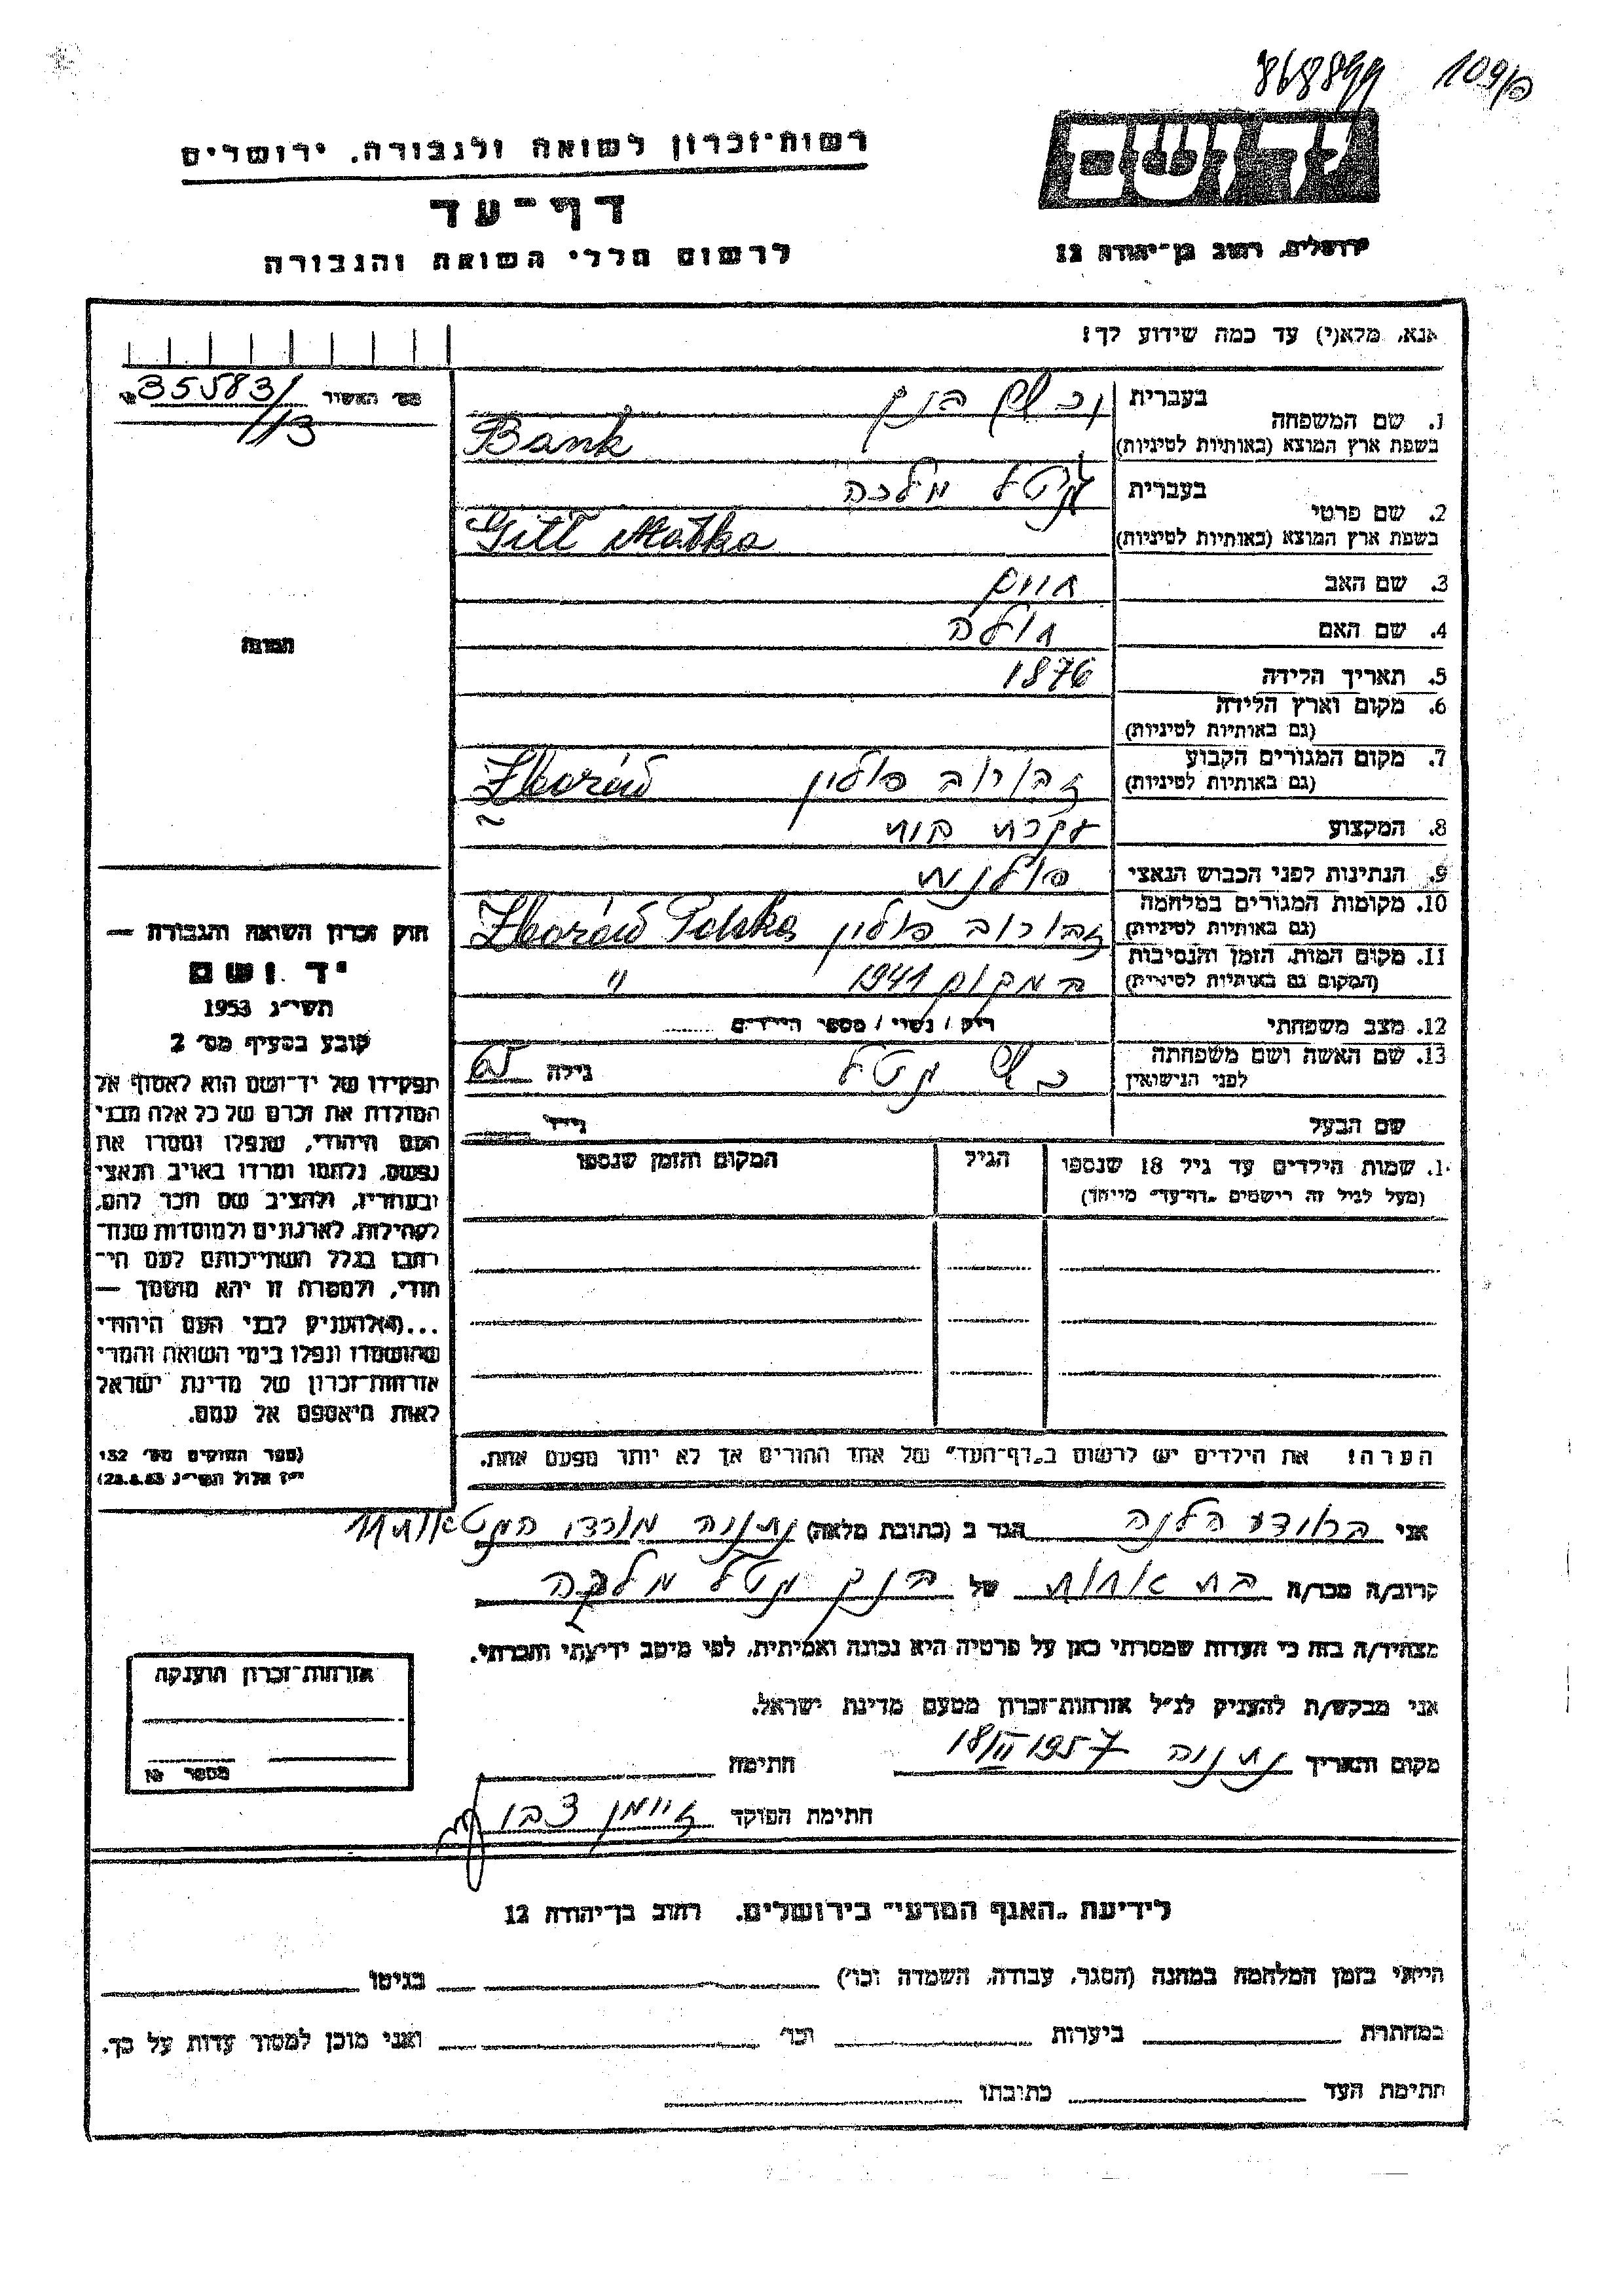 868899 109/פ
יד ושם
ירושלים, רחוב בן־יהודה 12
רשות־זכרון לשואה ולגבורה, ירושלים
דף־עד
לרשום חללי השואה והגבורה
אנא, מלא(י) עד כמה שידוע לך!
מס׳ האשור 35583/
113
1. שם המשפחה
בעברית בנק
בשפת ארץ המוצא (באותיות לטיניות) Bank
2. שם פרטי
בעברית גיטל מלכה
בשפת ארץ המוצא (באותיות לטיניות) Gitl Malka
3. שם האב חיים
4. שם האם
5. תאריך הלידה 1876
6. מקום וארץ הלידה
(גם באותיות לטיניות)
7. מקום המגורים הקבוע
(גם באותיות לטיניות) זבורוב פולין Zborów
8. המקצוע עקרת בית
9. הנתינות לפני הכבוש הנאצי פולנית
10. מקומות המגורים במלחמה
(גם באותיות לטיניות) זבורוב פולין Zborów Polska
11. מקום המות, הזמן והנסיבות
(המקום גם באותיות לטיניות) במקום 1941 "
12. מצב משפחתי רוק / נשוי / מספר הילדים
13. שם האשה ושם משפחתה
לפני הנישואין גיטל גילה 65
שם הבעל גילו
שמות הילדים עד גיל 18 שנספו
(מעל לגיל זה רישמים „דף־עד” מיוחד)
הגיל
המקום והזמן שנספו
הערה! את הילדים יש לרשום ב„דף־העד” של אחד ההורים אך לא יותר מפעם אחת.
התמונה
חוק זכרון השואה והגבורה —
יד ושם
תשי״ג 1953
קובע בסעיף מס׳ 2
תפקידו של יד־ושם הוא לאסוף אל
המולדת את זכרם של כל אלה מבני
העם היהודי, שנפלו ומסרו את
נפשם, נלחמו ומרדו באויב הנאצי
ובעוזריו, ולהציב שם וזכר להם,
לקהילות, לארגונים ולמוסדות שנח־
רבו בגלל השתייכותם לעם הי־
הודי, ולמטרה זו יהא מוסמך —
...(4) להעניק לבני העם היהודי
שהושמדו ונפלו בימי השואה והמרי
אזרחות־זכרון של מדינת ישראל
לאות היאספם אל עמם.
(ספר החוקים מס׳ 132
י״ז אלול תשי״ג 28.8.53)
אני ברודע הלנה הגר ב (כתובת מלאה) נתניה מורדי הגטאות 11
קרוב/ה מכר/ה בת אחות של בנק גיטל מלכה
מצהיר/ה בזה כי העדות שמסרתי כאן על פרטיה היא נכונה ואמיתית, לפי מיטב ידיעתי והכרתי.
אני מבקש/ת להעניק לנ״ל אזרחות־זכרון מטעם מדינת ישראל.
מקום ותאריך נתניה 18/II 1957 חתימה
חתימת הפוקד
אזרחות־זכרון הוענקה
מספר №
לידיעת „האגף המדעי” בירושלים, רחוב בן־יהודה 12
הייתי בזמן המלחמה במחנה (הסגר, עבודה, השמדה וכו׳) בגיטו
במחתרת ביערות וכו׳ ואני מוכן למסור עדות על כך.
חתימת העד כתובתו